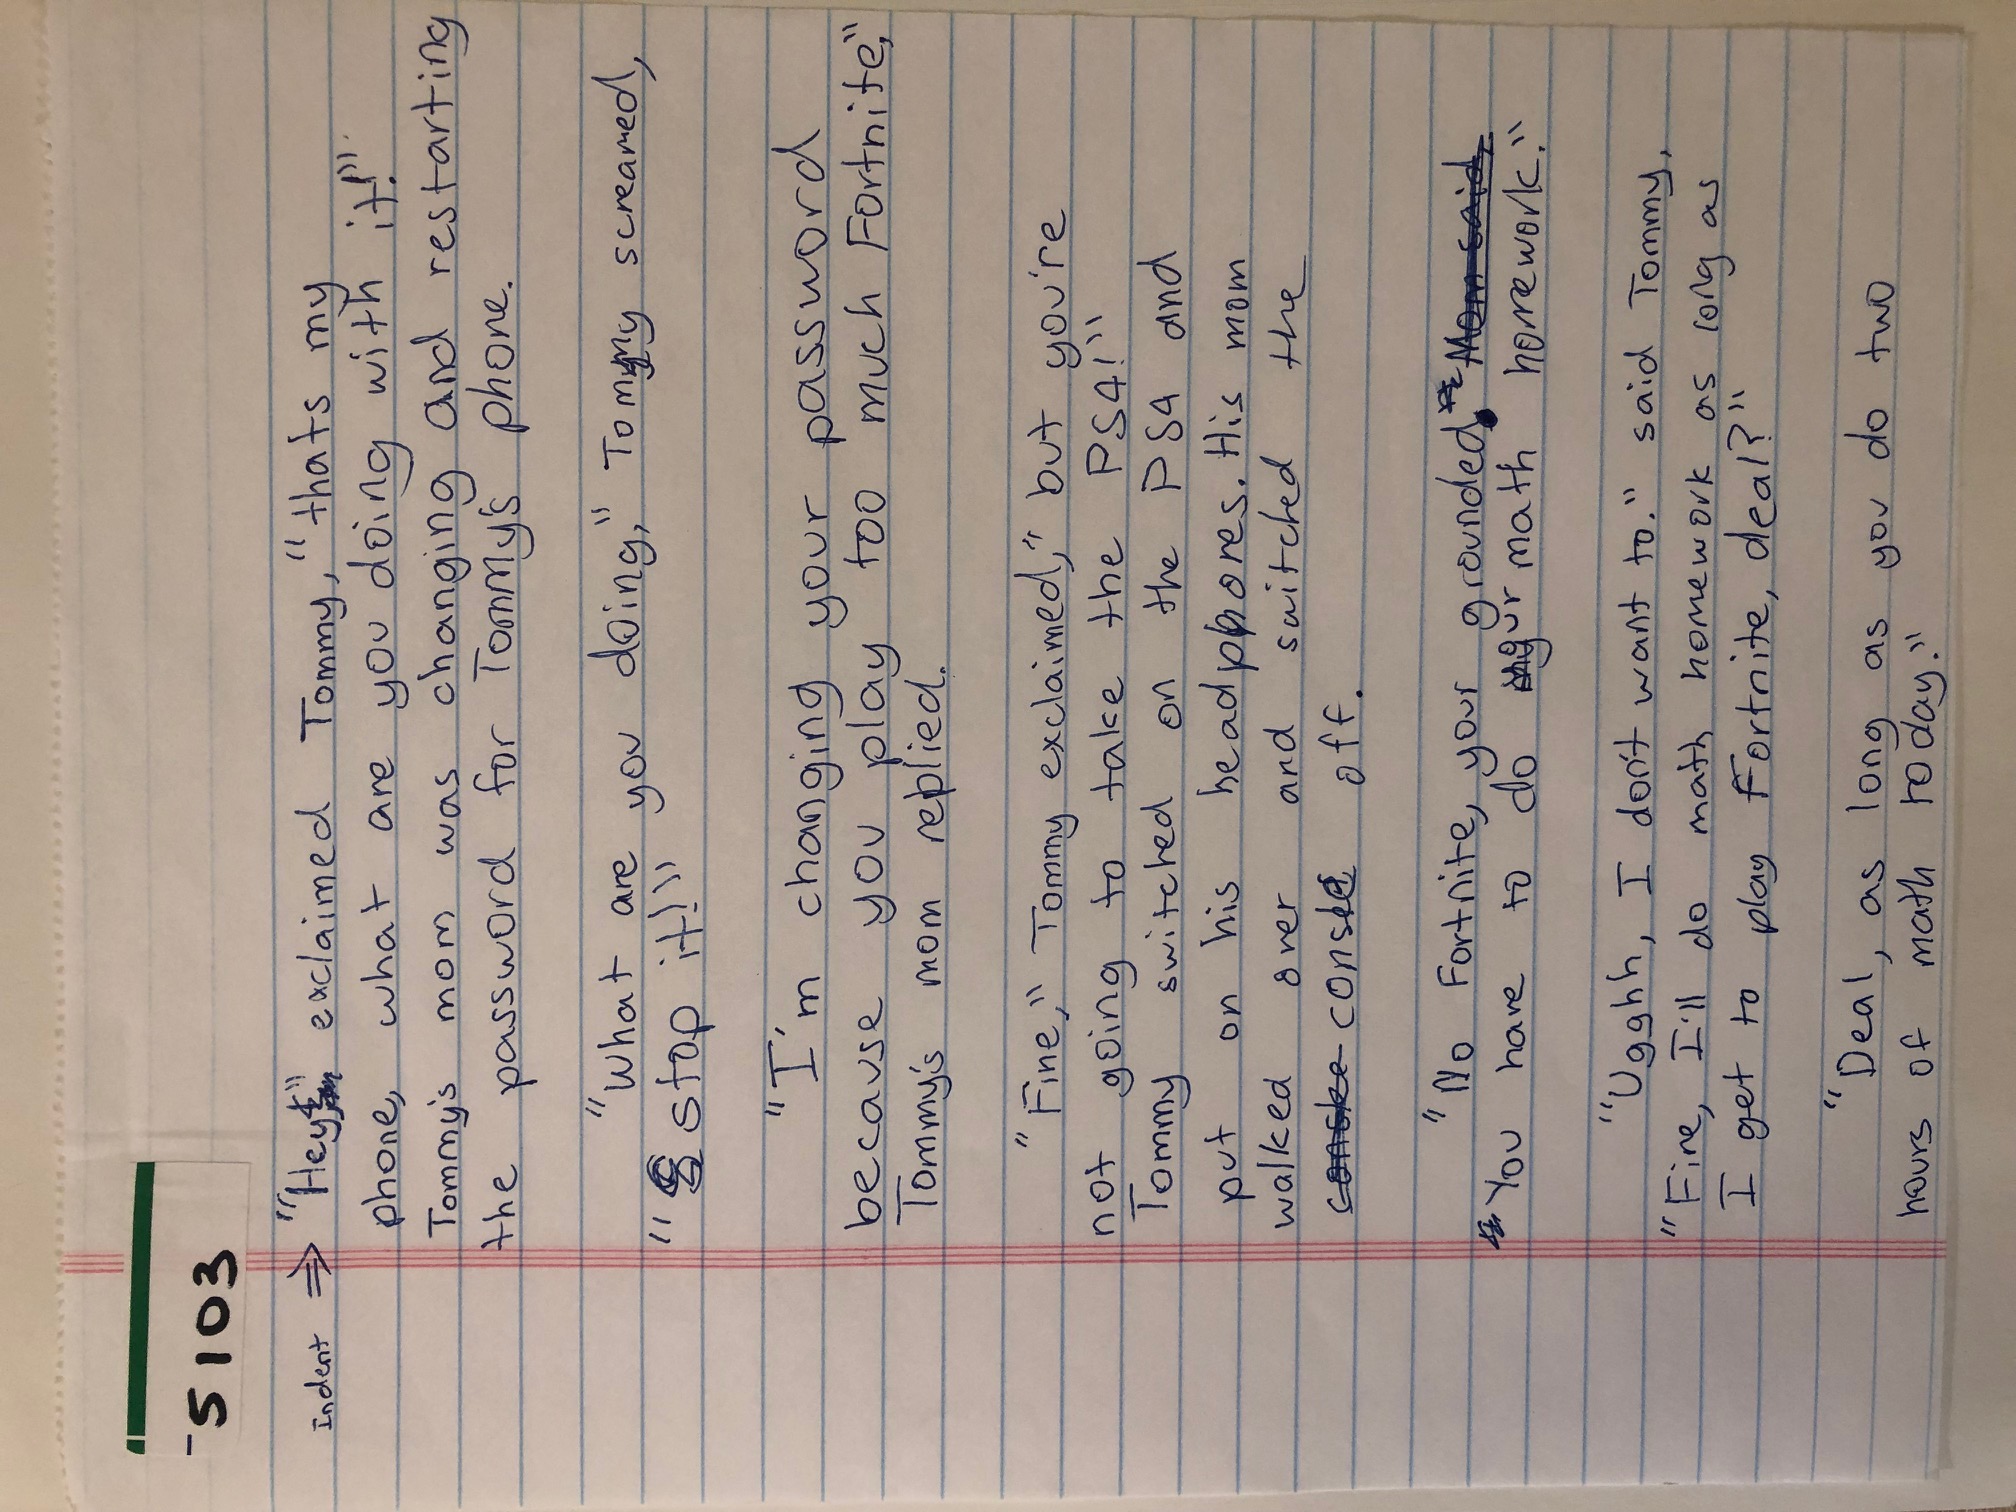 5103
Indent ⇒ "Hey," exclaimed Tommy, "thats my
phone, what are you doing with it!"
Tommy's mom was changing and restarting
the password for Tommy's phone.
"What are you doing," Tommy screamed,
"stop it!"
"I'm changing your password
because you play too much Fortnite,"
Tommy's mom replied.
"Fine," Tommy exclaimed," but you're
not going to take the PS4!"
Tommy switched on the PS4 and
put on his headphones. His mom
walked over and switched the
console off.
"No Fortnite, your grounded. Mom said,
You have to do your math homework."
"Ugghh, I don't want to." said Tommy,
"Fine, I'll do math homework as long as
I get to play Fortnite, deal?"
"Deal, as long as you do two
hours of math today."